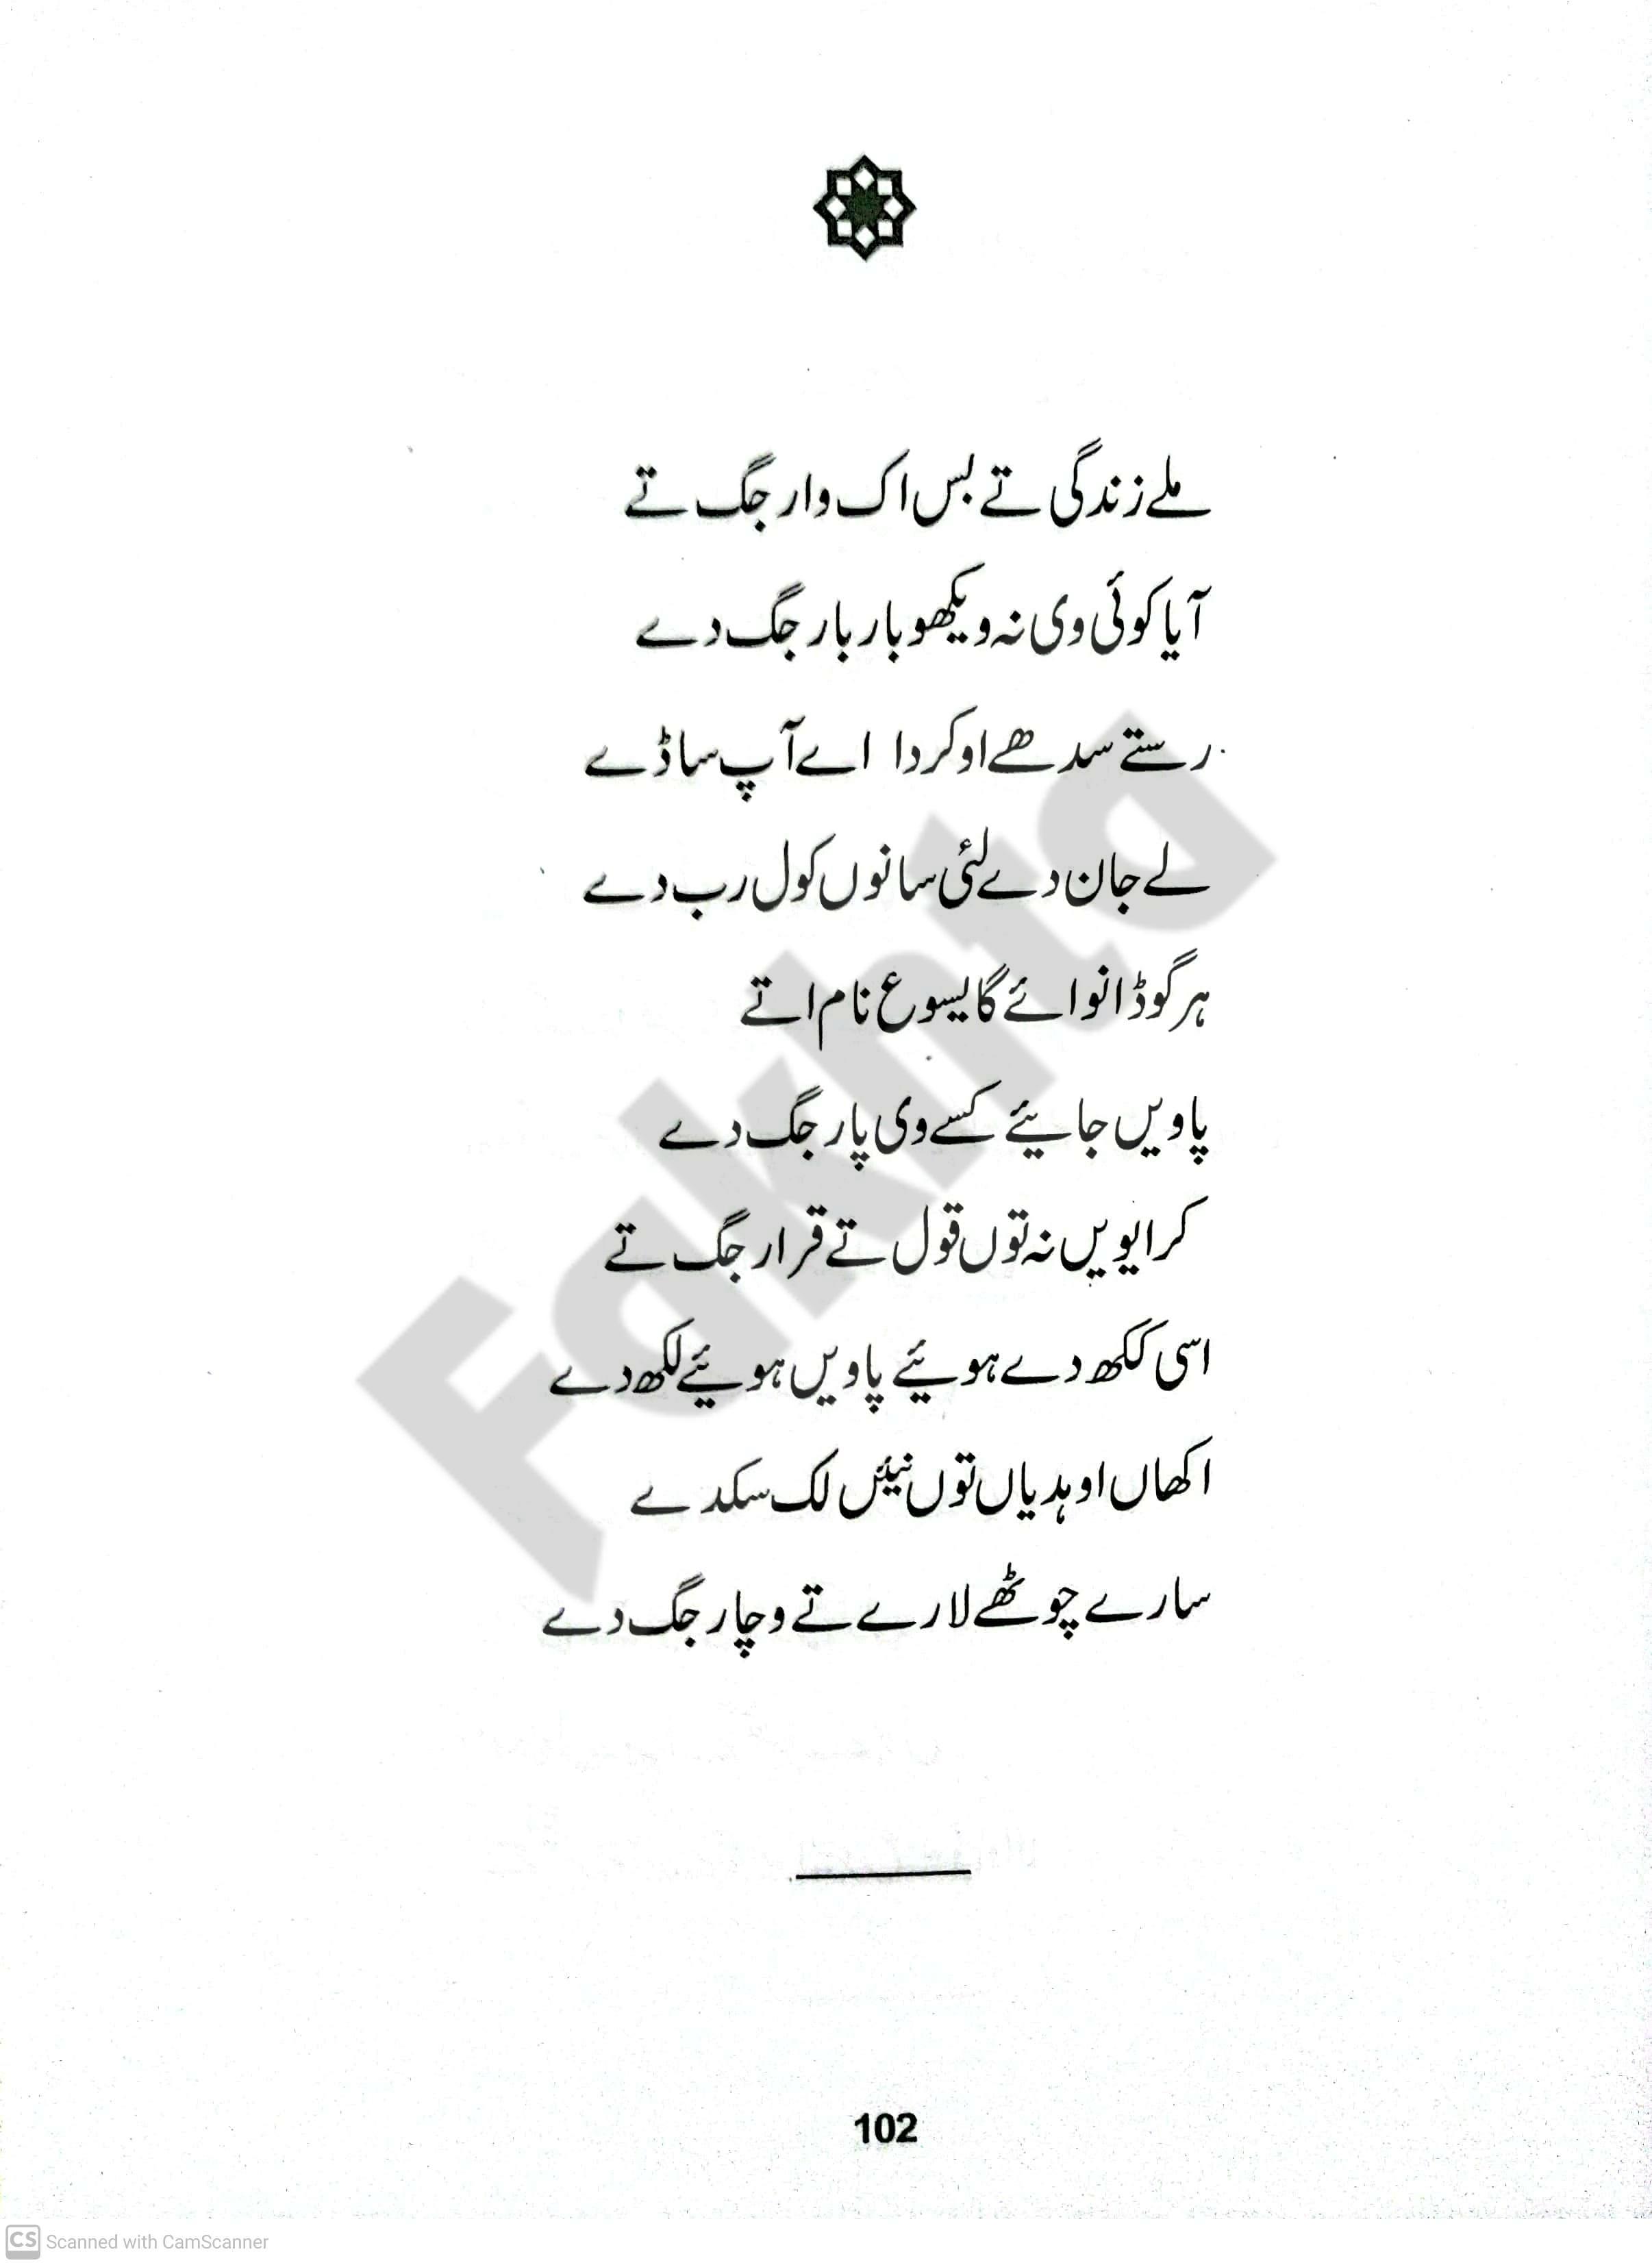 ملے زندگی تے بس اک وار جگ تے
آیا کوئی وی نہ ویکھو بار بار جگ دے
رستے سدھے او کردا اے آپ ساڈے
لے جان دے لئی سانوں کول رب دے
ہر گوڈا نوائے گا یسوع نام اتے
پاویں جایئے کسے وی پار جگ دے
کر ایویں نہ توں قول تے قرار جگ تے
اسی ککھ دے ہوئیے پاویں ہوئیے لکھ دے
اکھاں اوہدیاں توں نیئں لک سکدے
سارے چوٹھے لارے تے وچار جگ دے
Fakhta
102
CS Scanned with CamScanner